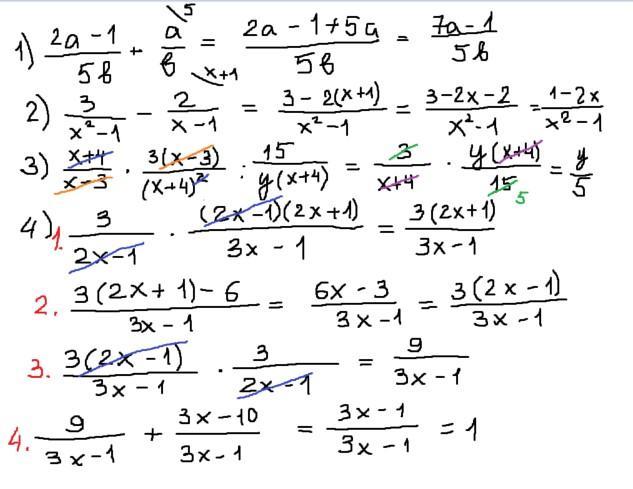 1) (2a - 1)/(5в) + a/в \5 = (2a - 1 + 5a)/(5в) = (7a - 1)/(5в)
2) 3/(x² - 1) - 2/(x - 1) \x+1 = (3 - 2(x+1))/(x² - 1) = (3 - 2x - 2)/(x² - 1) = (1 - 2x)/(x² - 1)
3) (x+4)/(x-3) · 3(x-3)/(x+4)² : 15/(y(x+4)) = 3/(x+4) · y(x+4)/15 5 = y/5
4) 1. 3/(2x-1) · (2x-1)(2x+1)/(3x - 1) = 3(2x+1)/(3x-1)
2. (3(2x + 1) - 6)/(3x - 1) = (6x - 3)/(3x - 1) = 3(2x - 1)/(3x - 1)
3. 3(2x - 1)/(3x - 1) · 3/(2x - 1) = 9/(3x - 1)
4. 9/(3x-1) + (3x - 10)/(3x - 1) = (3x - 1)/(3x - 1) = 1